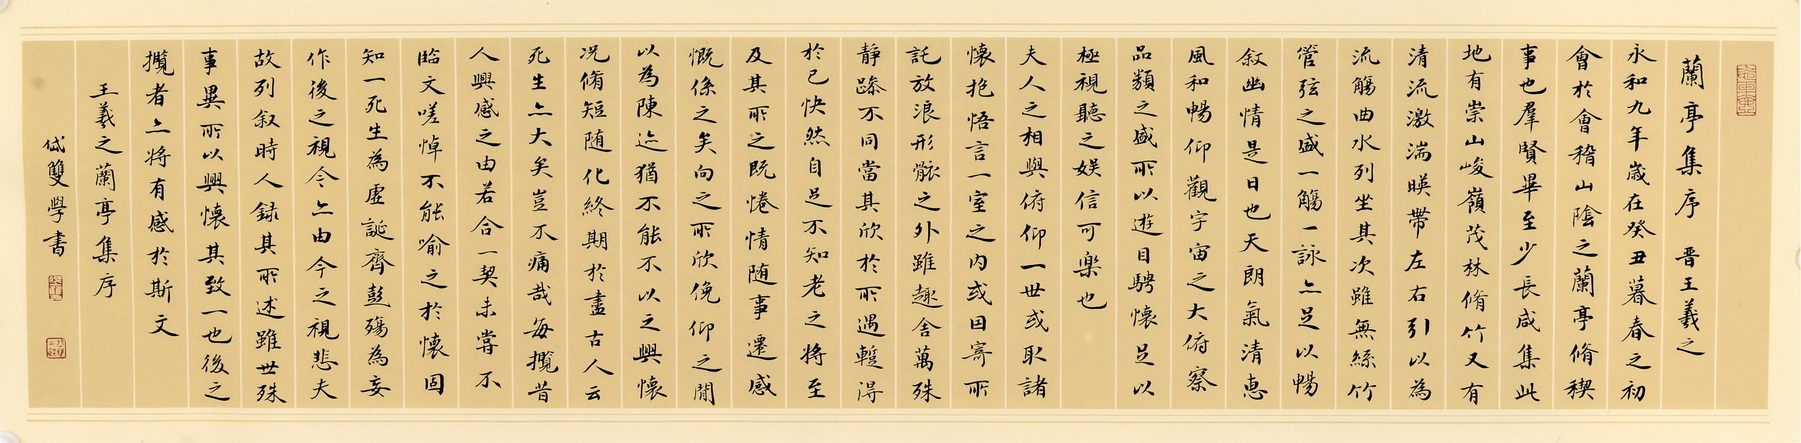 蘭亭集序 晋王羲之
永和九年歲在癸丑暮春之初
會於會稽山陰之蘭亭脩稧
事也羣賢畢至少長咸集此
地有崇山峻嶺茂林脩竹又有
清流激湍暎帶左右引以為
流觴曲水列坐其次雖無絲竹
管弦之盛一觴一詠亦足以暢
叙幽情是日也天朗氣清惠
風和暢仰觀宇宙之大俯察
品類之盛所以遊目騁懷足以
極視聽之娛信可樂也
夫人之相與俯仰一世或取諸
懷抱悟言一室之内或因寄所
託放浪形骸之外雖趣舍萬殊
靜躁不同當其欣於所遇暫得
於己快然自足不知老之將至
及其所之既惓情随事遷感
慨係之矣向之所欣俛仰之閒
以為陳迹猶不能不以之興懷
况脩短随化終期於盡古人云
死生亦大矣豈不痛哉每攬昔
人興感之由若合一契未嘗不
臨文嗟悼不能喻之於懷固
知一死生為虛誕齊彭殤為妄
作後之視今亦由今之視悲夫
故列叙時人録其所述雖世殊
事異所以興懷其致一也後之
攬者亦將有感於斯文
王羲之蘭亭集序
雙學書